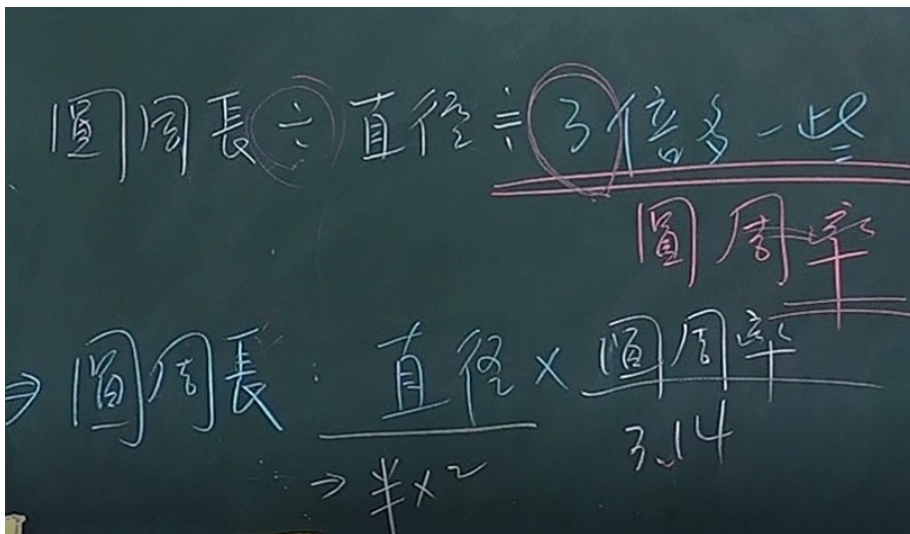 圓周長÷直徑≒3倍多一些
圓周率
⇒圓周長:直徑×圓周率
→半×2
3.14